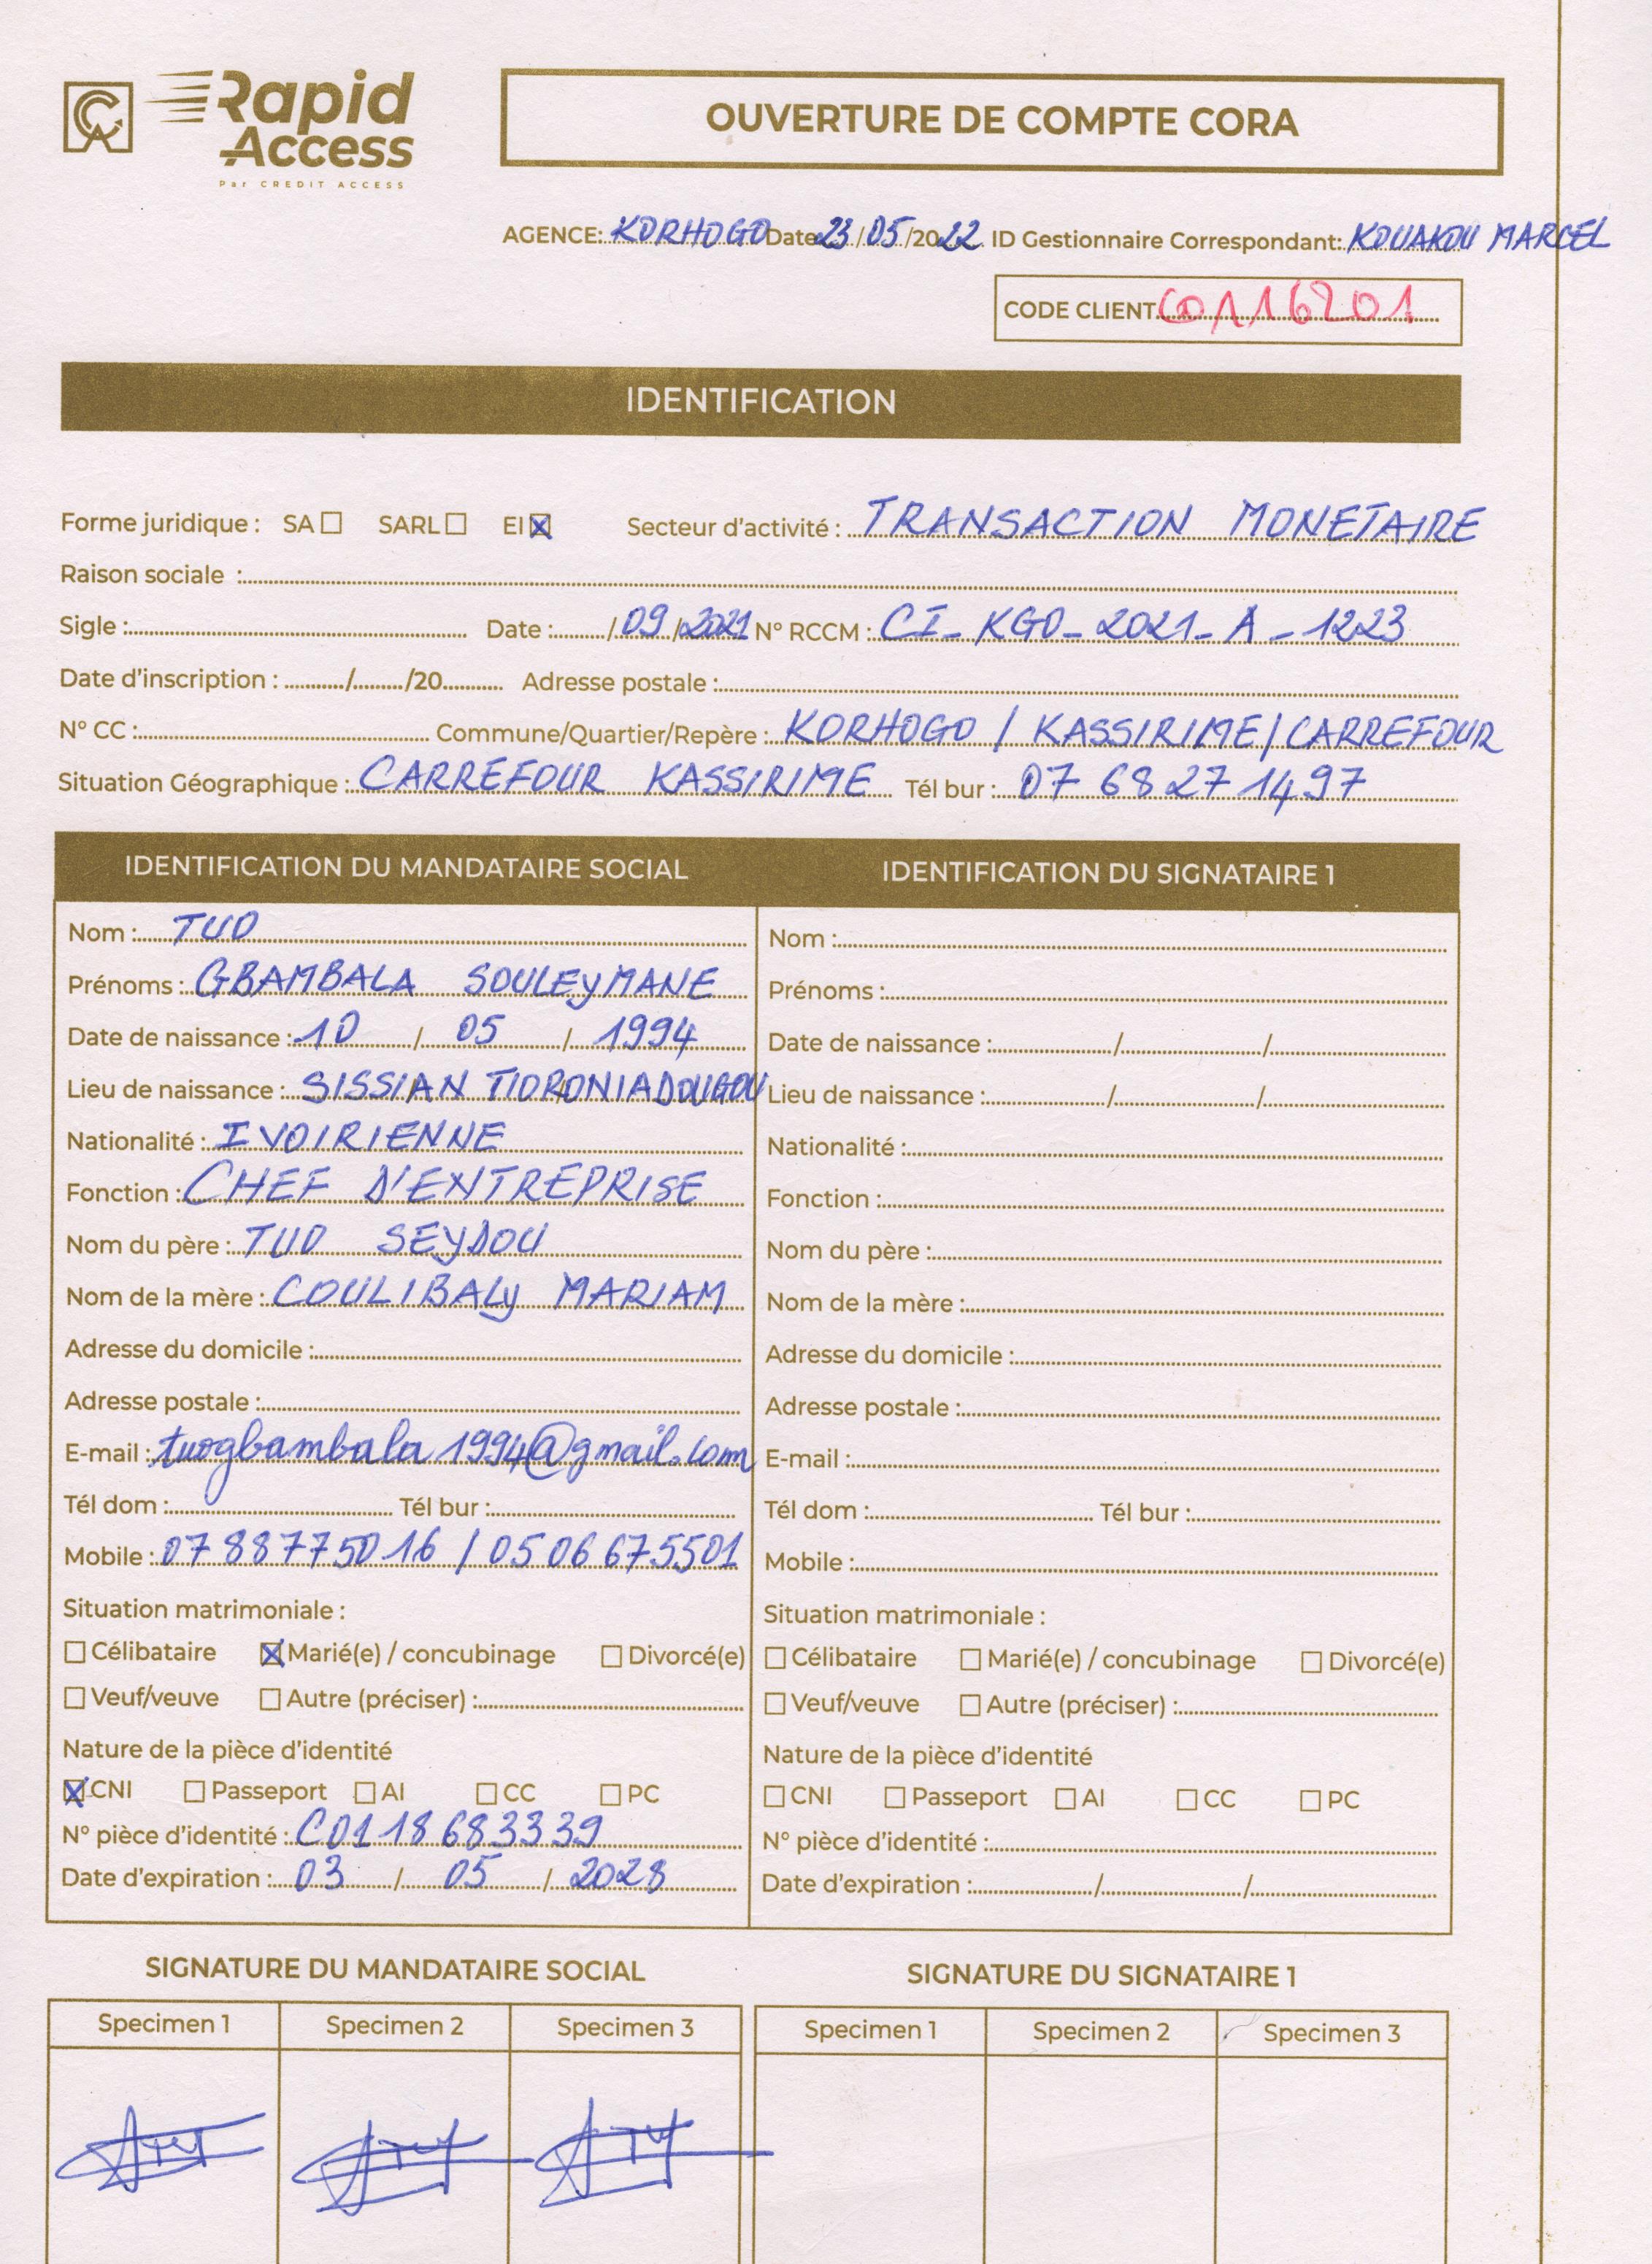 CA Rapid
Access
Par CREDIT ACCESS
OUVERTURE DE COMPTE CORA
AGENCE: KORHOGO Date 23/05/2022 ID Gestionnaire Correspondant: KOUAKOU MARCEL
CODE CLIENT 60116201
IDENTIFICATION
Forme juridique : SA ☐ SARL ☐ EI ☒ Secteur d'activité : TRANSACTION MONETAIRE
Raison sociale :
Sigle : Date : /09/2021 N° RCCM : CI_KGO_2021_A_1223
Date d'inscription : / /20 Adresse postale :
N° CC : Commune/Quartier/Repère : KORHOGO / KASSIRIME / CARREFOUR
Situation Géographique : CARREFOUR KASSIRIME Tél bur : 07 68 27 14 97
IDENTIFICATION DU MANDATAIRE SOCIAL
Nom : TUO
Prénoms : GBAMBALA SOULEYMANE
Date de naissance : 10 / 05 / 1994
Lieu de naissance : SISSIAN TIORONIADOUGOU
Nationalité : IVOIRIENNE
Fonction : CHEF D'ENTREPRISE
Nom du père : TUO SEYDOU
Nom de la mère : COULIBALY MARIAM
Adresse du domicile :
Adresse postale :
E-mail : tuogbambala1994@gmail.com
Tél dom : Tél bur :
Mobile : 07 88775016 / 0506675501
Situation matrimoniale :
☐ Célibataire ☒ Marié(e) / concubinage ☐ Divorcé(e)
☐ Veuf/veuve ☐ Autre (préciser) :
Nature de la pièce d'identité
☒ CNI ☐ Passeport ☐ AI ☐ CC ☐ PC
N° pièce d'identité : C0118683339
Date d'expiration : 03 / 05 / 2028
IDENTIFICATION DU SIGNATAIRE 1
Nom :
Prénoms :
Date de naissance : / /
Lieu de naissance : / /
Nationalité :
Fonction :
Nom du père :
Nom de la mère :
Adresse du domicile :
Adresse postale :
E-mail :
Tél dom : Tél bur :
Mobile :
Situation matrimoniale :
☐ Célibataire ☐ Marié(e) / concubinage ☐ Divorcé(e)
☐ Veuf/veuve ☐ Autre (préciser) :
Nature de la pièce d'identité
☐ CNI ☐ Passeport ☐ AI ☐ CC ☐ PC
N° pièce d'identité :
Date d'expiration : / /
SIGNATURE DU MANDATAIRE SOCIAL
Specimen 1 Specimen 2 Specimen 3
SIGNATURE DU SIGNATAIRE 1
Specimen 1 Specimen 2 Specimen 3